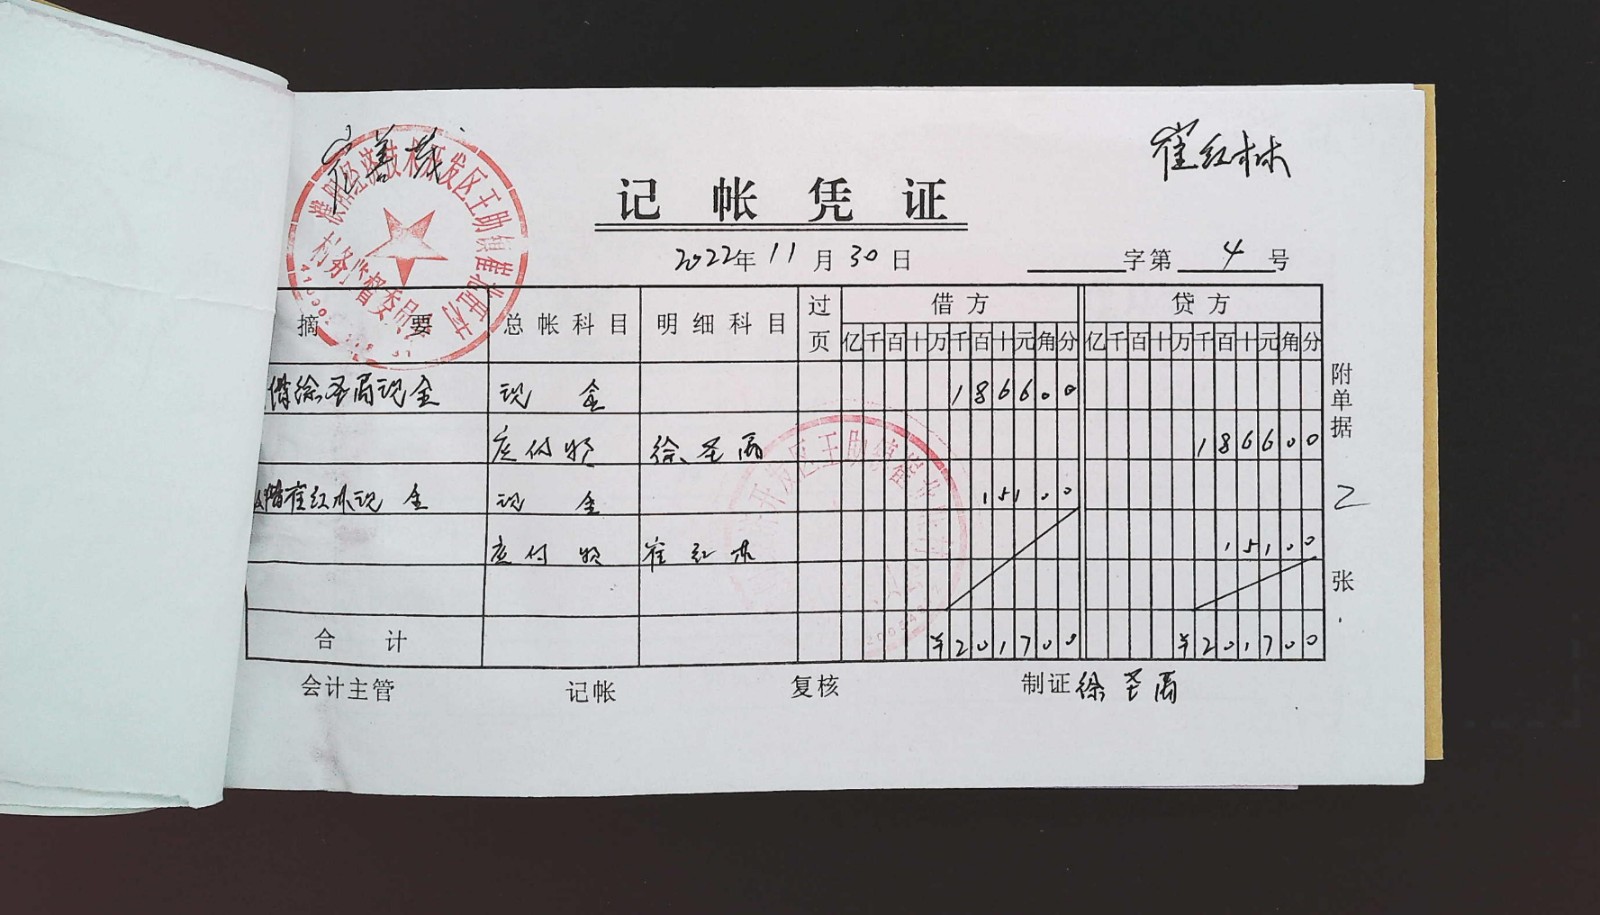 崔善茂
崔红林
濮阳经济技术开发区王助镇崔北里村
村务监督委员会
记帐凭证
2022年11月30日
字第 4 号
摘要 总帐科目 明细科目 过页 借方 贷方
亿千百十万千百十元角分 亿千百十万千百十元角分
借徐圣雨现金 现金 186600
应付款 徐圣雨 186600
借崔红林现金 现金 15100
应付款 崔红林 15100
合计 ¥201700 ¥201700
附单据 2 张
会计主管 记帐 复核 制证 徐圣雨
开发区王助镇崔